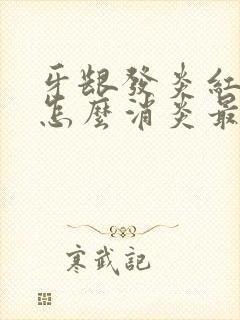 牙龈發炎紅
怎麼消炎最
寒武記